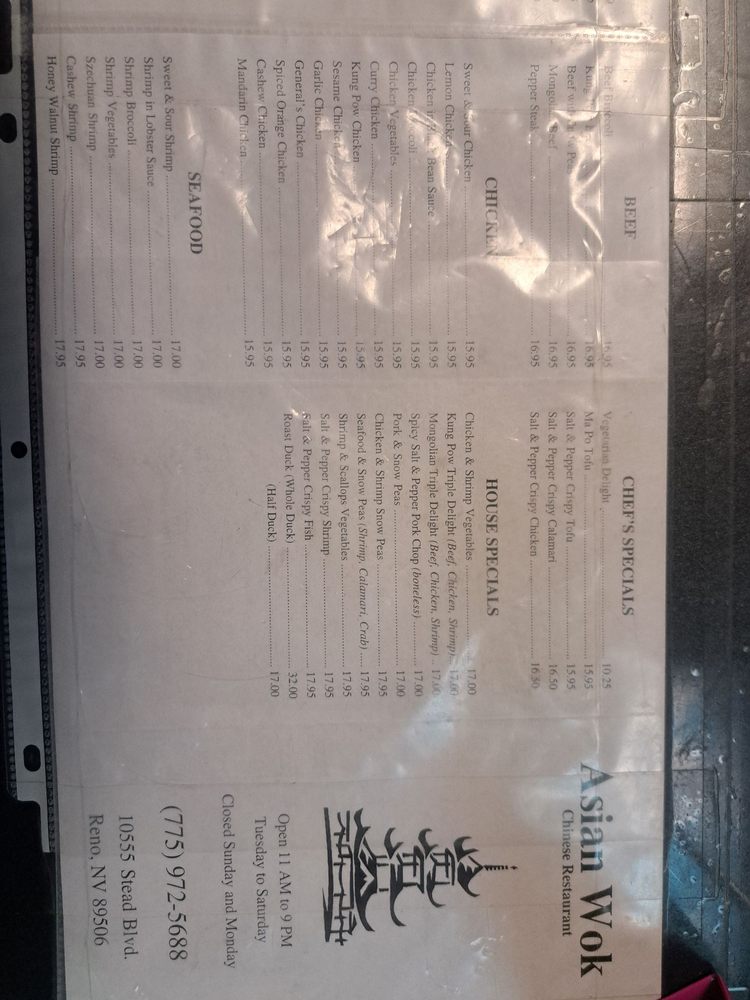 BEEF
Beef Broccoli 16.95
Kung 16.95
Beef 16.95
Mongolian Beef 16.95
Pepper Steak 16.95
CHICKEN
Sweet & Sour Chicken 15.95
Lemon Chicken 15.95
Chicken in Bean Sauce 15.95
Chicken Broccoli 15.95
Chicken Vegetables 15.95
Curry Chicken 15.95
Kung Pow Chicken 15.95
Sesame Chicken 15.95
Garlic Chicken 15.95
General's Chicken 15.95
Spiced Orange Chicken 15.95
Cashew Chicken 15.95
Mandarin Chicken 15.95
SEAFOOD
Sweet & Sour Shrimp 17.00
Shrimp in Lobster Sauce 17.00
Shrimp Broccoli 17.00
Shrimp Vegetables 17.00
Szechuan Shrimp 17.00
Cashew Shrimp 17.95
Honey Walnut Shrimp 17.95
CHEF'S SPECIALS
Vegetarian Delight 10.25
Ma Po Tofu 15.95
Salt & Pepper Crispy Tofu 15.95
Salt & Pepper Crispy Calamari 16.50
Salt & Pepper Crispy Chicken 16.50
HOUSE SPECIALS
Chicken & Shrimp Vegetables 17.00
Kung Pow Triple Delight (Beef, Chicken, Shrimp) 17.00
Mongolian Triple Delight (Beef, Chicken, Shrimp) 17.00
Spicy Salt & Pepper Pork Chop (boneless) 17.00
Pork & Snow Peas 17.00
Chicken & Shrimp Snow Peas 17.95
Seafood & Snow Peas (Shrimp, Calamari, Crab) 17.95
Shrimp & Scallops Vegetables 17.95
Salt & Pepper Crispy Shrimp 17.95
Salt & Pepper Crispy Fish 17.95
Roast Duck (Whole Duck) 32.00
(Half Duck) 17.00
Asian Wok
Chinese Restaurant
Open 11 AM to 9 PM
Tuesday to Saturday
Closed Sunday and Monday
(775) 972-5688
10555 Stead Blvd.
Reno, NV 89506